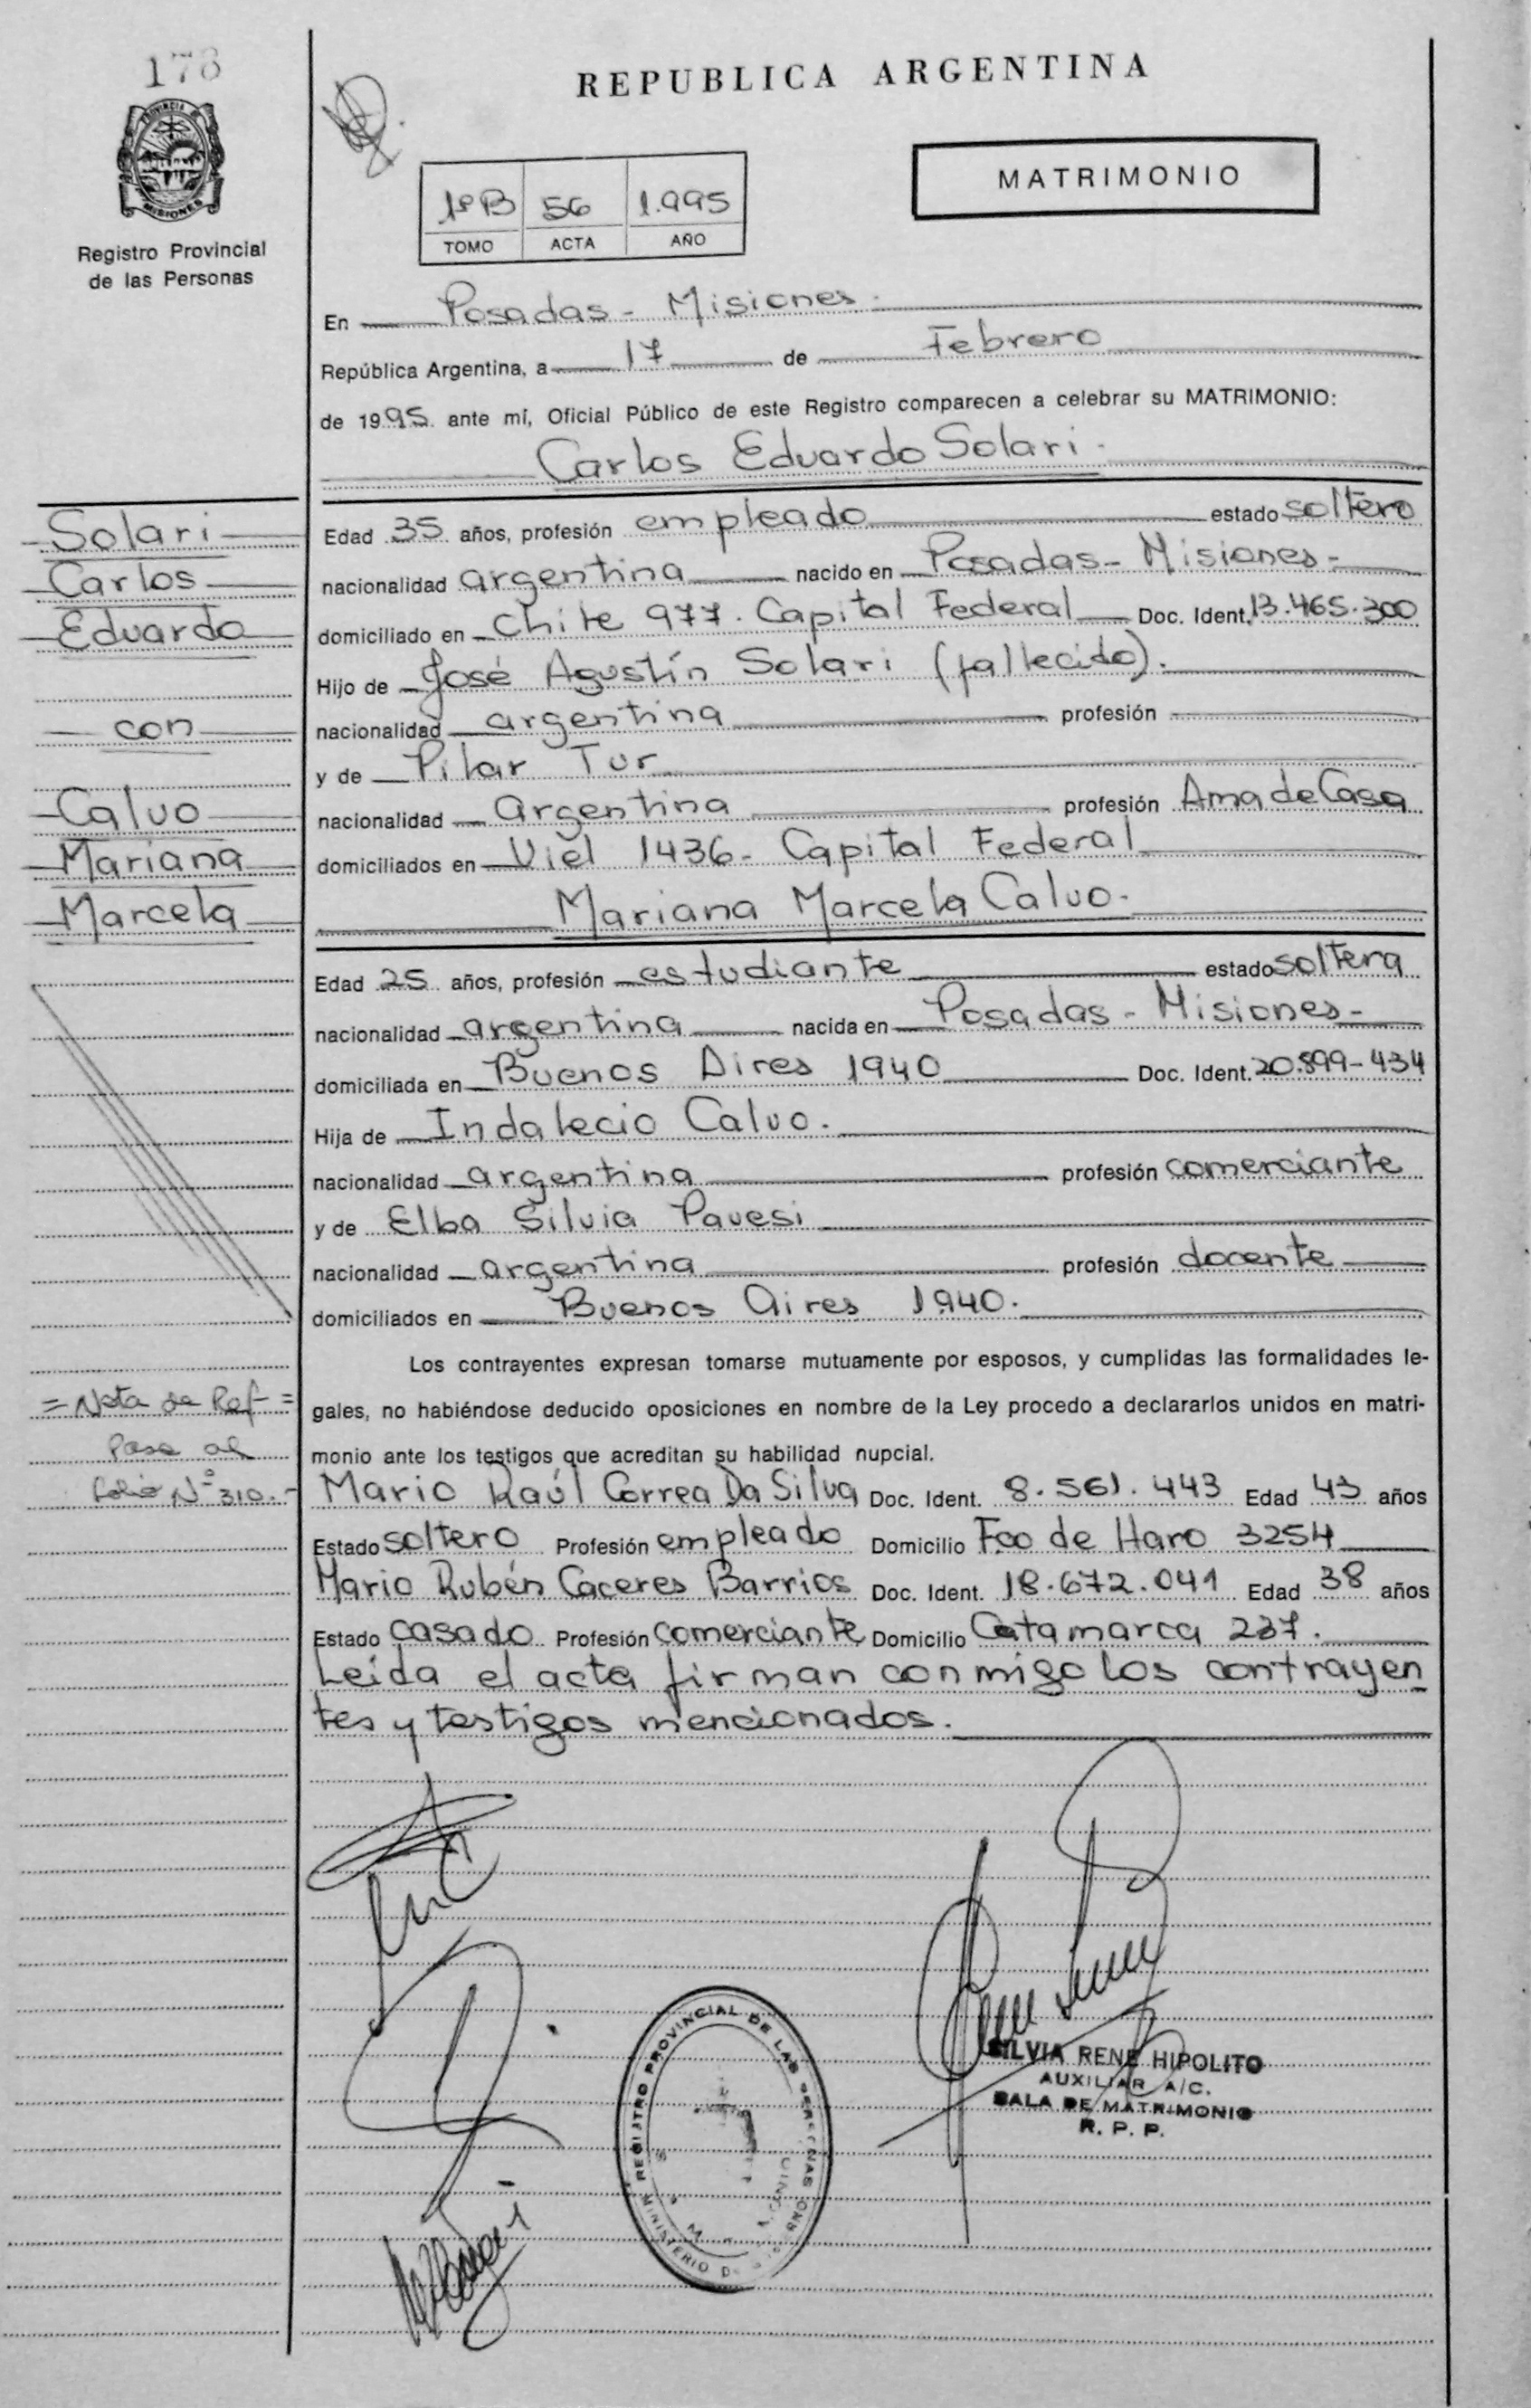 178
PROVINCIA DE
MISIONES
Registro Provincial
de las Personas
REPUBLICA ARGENTINA
MATRIMONIO
1ºB 56 1.995
TOMO ACTA AÑO
En Posadas - Misiones.
República Argentina, a 17 de Febrero
de 1995 ante mí, Oficial Público de este Registro comparecen a celebrar su MATRIMONIO:
Carlos Eduardo Solari.
Solari
Carlos
Eduardo
con
Calvo
Mariana
Marcela
Edad 35 años, profesión empleado estado soltero
nacionalidad argentina nacido en Posadas - Misiones -
domiciliado en Chile 977. Capital Federal Doc. Ident. 13.465.300
Hijo de José Agustín Solari (fallecido).
nacionalidad argentina profesión
y de Pilar Tur
nacionalidad argentina profesión Ama de Casa
domiciliados en Viel 1436 - Capital Federal
Mariana Marcela Calvo.
Edad 25 años, profesión estudiante estado soltera
nacionalidad argentina nacida en Posadas - Misiones -
domiciliada en Buenos Aires 1940 Doc. Ident. 20.899-434
Hija de Indalecio Calvo.
nacionalidad argentina profesión comerciante
y de Elba Silvia Pavesi
nacionalidad argentina profesión docente
domiciliados en Buenos Aires 1940.
Los contrayentes expresan tomarse mutuamente por esposos, y cumplidas las formalidades le-
gales, no habiéndose deducido oposiciones en nombre de la Ley procedo a declararlos unidos en matri-
monio ante los testigos que acreditan su habilidad nupcial.
= Nota de Ref =
Pase al
folio Nº 310.-
Mario Raúl Correa Da Silva Doc. Ident. 8.561.443 Edad 43 años
Estado soltero Profesión empleado Domicilio Fco de Haro 3254
Mario Rubén Caceres Barrios Doc. Ident. 18.672.041 Edad 38 años
Estado casado Profesión comerciante Domicilio Catamarca 237.
Leida el acta firman conmigo los contrayen
tes y testigos mencionados.
REGISTRO PROVINCIAL DE LAS PERSONAS
MINISTERIO
SILVIA RENE HIPOLITO
AUXILIAR A/C.
SALA DE MATRIMONIO
R. P. P.